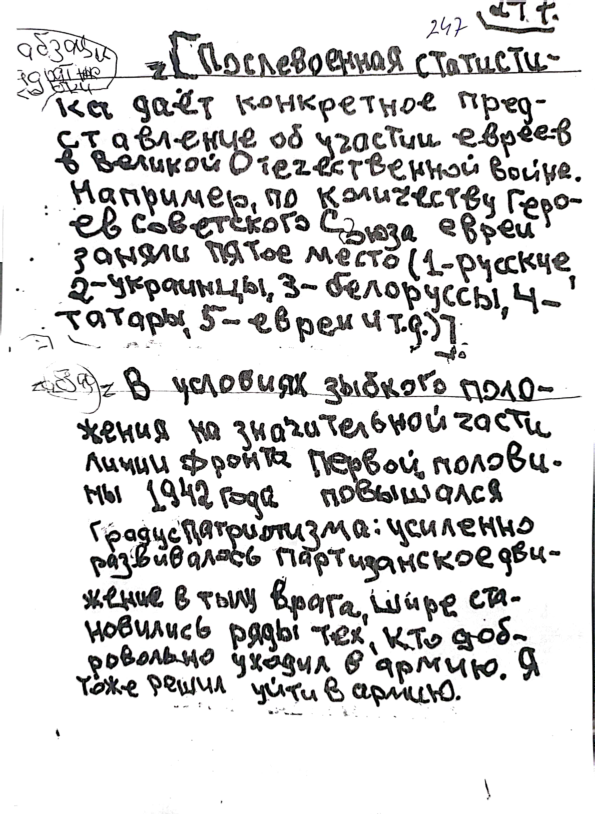 247
абзац
z[Послевоенная статисти-
ка даёт конкретное пред-
ставление об участии евреев
в Великой Отечественной войне.
Например, по количеству Геро-
ев Советского Союза евреи
заняли пятое место (1-русские,
2-украинцы, 3-белоруссы, 4-
татары, 5-евреи и т.д.)]
абзац z В условиях зыбкого поло-
жения на значительной части
линии фронта первой полови-
ны 1942 года повышался
градус патриотизма: усиленно
развивалось партизанское дви-
жение в тылу врага, шире ста-
новились ряды тех, кто доб-
ровольно уходил в армию. Я
тоже решил уйти в армию.